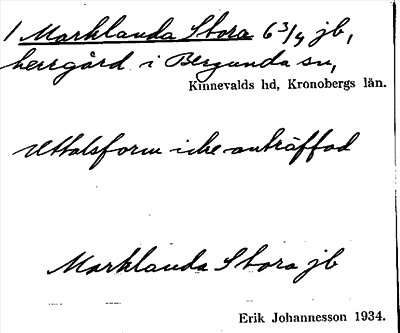 1 Marklanda Stora 6 3/4 jb,
herrgård i Bergunda sn,
Kinnevalds hd, Kronobergs län.
Uttalsform icke anträffad
Marklanda Stora jb
Erik Johannesson 1934.